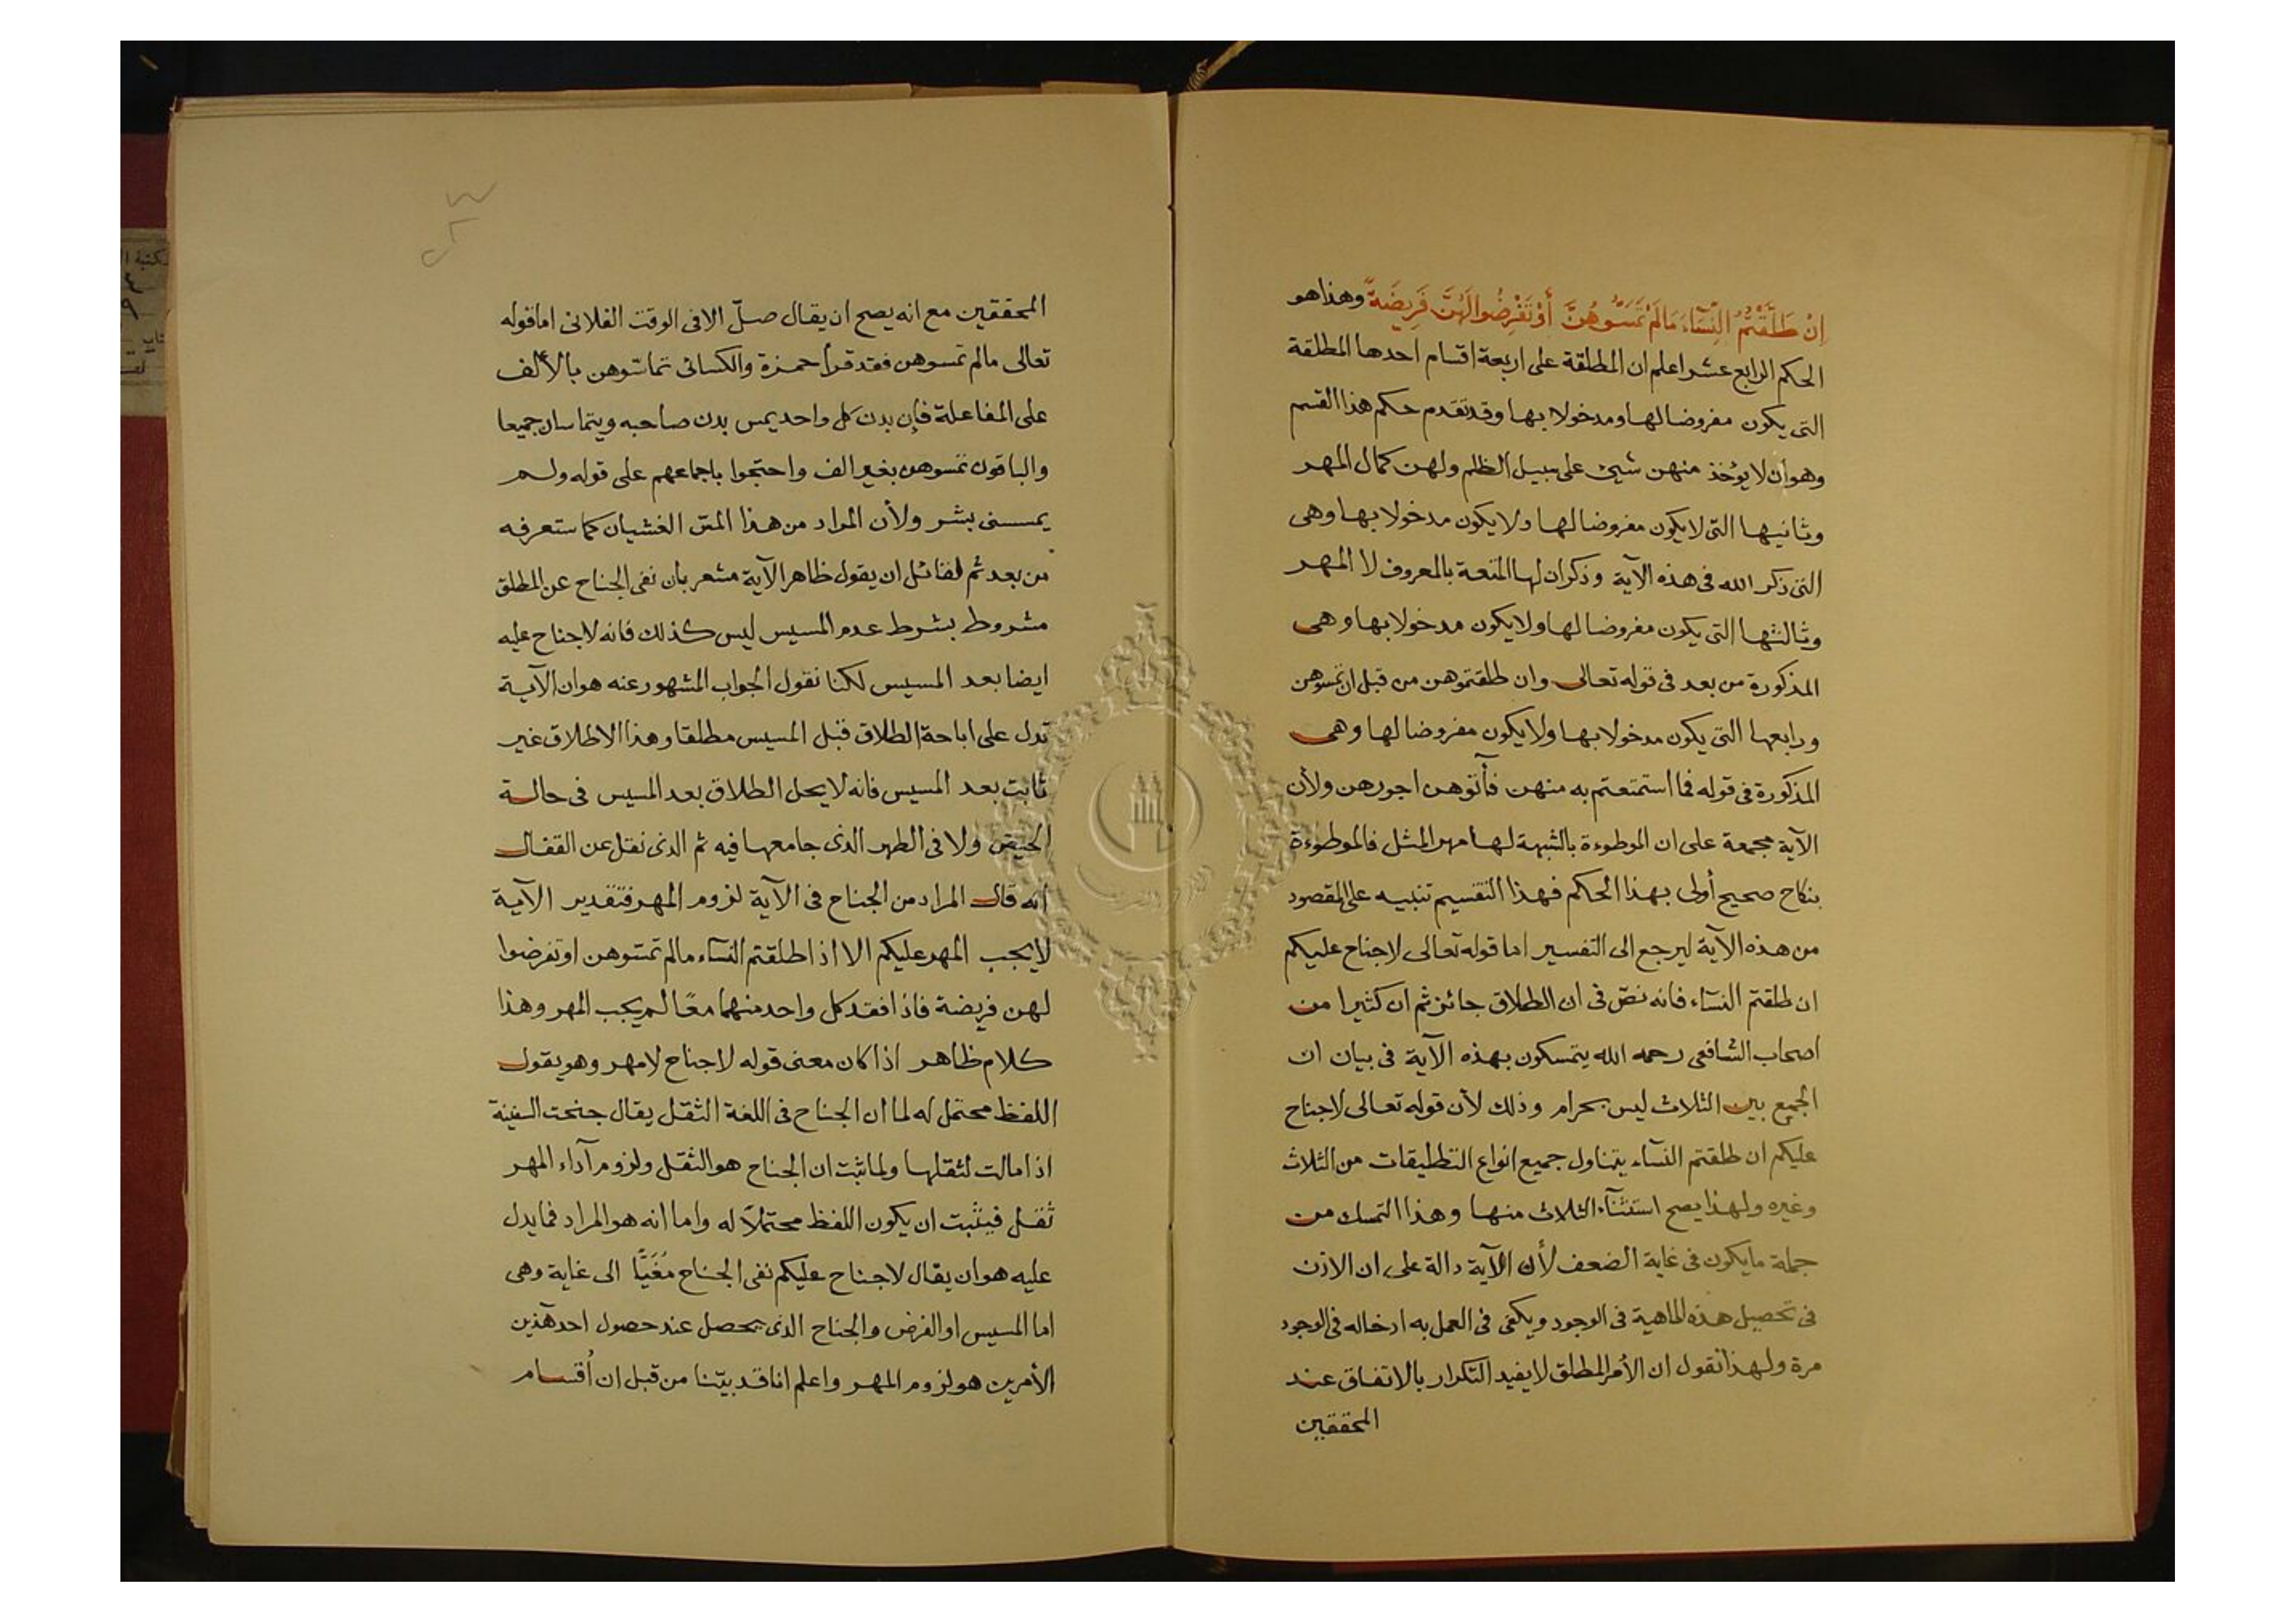 إِنْ طَلَّقْتُمُ النِّسَآءَ مَالَمْ تَمَسُّوهُنَّ أَوْ تَفْرِضُوا لَهُنَّ فَرِيضَةً وهذا هو
الحكم الرابع عشر اعلم ان المطلقة على اربعة اقسام احدها المطلقة
التى يكون مفروضا لها ومدخولا بها وقد تقدم حكم هذا القسم
وهو أن لا يؤخذ منهن شيئ على سبيل الظلم ولهن كمال المهر
وثانيها التى لا يكون مفروضا لها ولا يكون مدخولا بها وهى
التى ذكر الله فى هذه الآية وذكر ان لها المتعة بالمعروف لا المهر
وثالثها التى يكون مفروضا لها ولا يكون مدخولا بها وهى
المذكورة من بعد فى قوله تعالى وان طلقتموهن من قبل ان تمسوهن
ورابعها التى يكون مدخولا بها ولا يكون مفروضا لها وهى
المذكورة فى قوله فما استمتعتم به منهن فأتوهن اجورهن ولأن
الآية مجمعة على ان الموطوءة بالشبهة لها مهر المثل فالموطوءة
بنكاح صحيح أولى بهذا الحكم فهذا التقسيم تنبيه على المقصود
من هذه الآية ليرجع الى التفسير اما قوله تعالى لا جناح عليكم
ان طلقتم النسآء فانه نصّ فى ان الطلاق جائز ثم ان كثيرا من
اصحاب الشافعى رحمه الله يتمسكون بهذه الآية فى بيان ان
الجمع بين الثلاث ليس بحرام وذلك لأن قوله تعالى لا جناح
عليكم ان طلقتم النسآء يتناول جميع انواع التطليقات من الثلاث
وغيره ولهذا يصح استثنآء الثلاث منها وهذا التمسك من
جملة ما يكون فى غاية الضعف لأن الآية دالة على ان الاذن
فى تحصيل هذه الماهية فى الوجود ويكفى فى العمل به ادخاله فى الوجود
مرة ولهذا نقول ان الأمر المطلق لا يفيد التكرار بالاتفاق عند
المحققين
المحققين مع انه يصح ان يقال صلّ الا فى الوقت الفلانى اما قوله
تعالى مالم تمسوهن فقد قرأ حمزة والكسائى تماسّوهن بالألف
على المفاعلة فإن بدن كل واحد يمس بدن صاحبه ويتماسان جميعا
والباقون تمسوهن بغير الف واحتجوا باجماعهم على قوله ولم
يمسسنى بشر ولأن المراد من هذا المسّ الغشيان كما ستعرفه
من بعد ثم لقائل ان يقول ظاهر الآية مشعر بان نفى الجناح عن المطلق
مشروط بشرط عدم المسيس ليس كذلك فانه لا جناح عليه
ايضا بعد المسيس لكنا نقول الجواب المشهور عنه هو ان الآية
تدل على اباحة الطلاق قبل المسيس مطلقا وهذا الاطلاق غير
ثابت بعد المسيس فانه لا يحل الطلاق بعد المسيس فى حالة
الحيض ولا فى الطهر الذى جامعها فيه ثم الذى نقل عن القفال
أنه قال المراد من الجناح فى الآية لزوم المهر فتقدير الآية
لا يجب المهر عليكم الا اذا طلقتم النسآء مالم تمسّوهن او تفرضوا
لهن فريضة فاذا فقد كل واحد منهما معًا لم يجب المهر وهذا
كلام ظاهر اذا كان معنى قوله لا جناح لا مهر وهو يقول
اللفظ محتمل له لما ان الجناح فى اللغة الثقل يقال جنحت السفينة
اذا مالت لثقلها ولما ثبت ان الجناح هو الثقل ولزوم آداء المهر
ثقل فيثبت ان يكون اللفظ محتملاً له واما انه هو المراد فما يدل
عليه هو ان يقال لا جناح عليكم نفى الجناح مُغَيًّا الى غاية وهى
اما المسيس او الفرض والجناح الذى يحصل عند حصول احد هذين
الأمرين هو لزوم المهر واعلم انا قد بيّنا من قبل ان أقسام